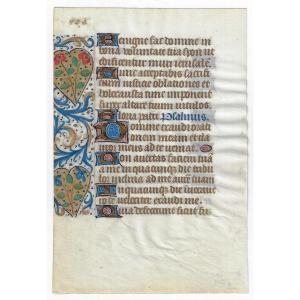 Benigne fac domine in
bona voluntate tua syon ut
edificentur muri iherusalem
Tunc acceptabis sacrifi
cium iusticie oblationes et
holocausta tunc imponent
super altare tuum vitulos
Gloria patri. Psalmus.
Domine exaudi orati
onem meam et cla
mor meus ad te veniat
Non avertas faciem tua
a me in quacunq die tri
bulor inclina ad me aurem tuam
In quacunq die invocave
ro te velociter exaudi me
Quia defecerunt sicut fu